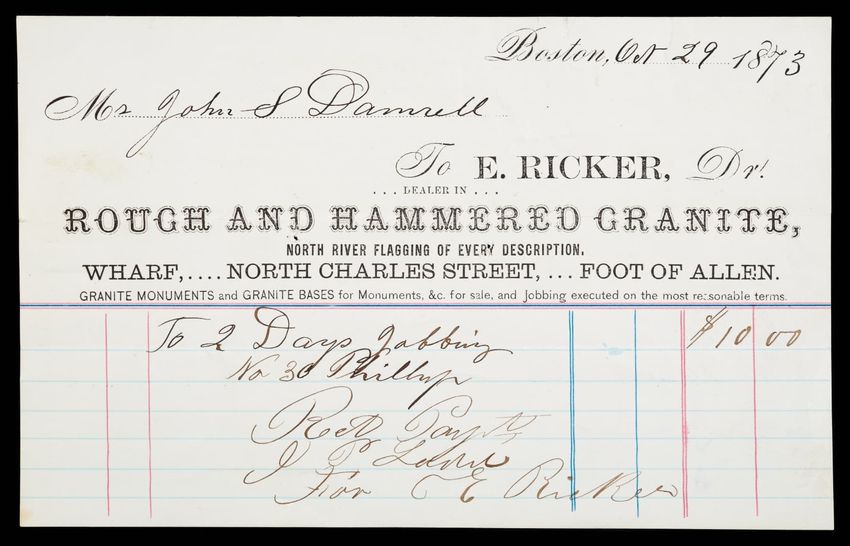 Boston, Oct 29 1873
Mr John S Damrell
To E. RICKER, Dr.
... DEALER IN ...
ROUGH AND HAMMERED GRANITE,
NORTH RIVER FLAGGING OF EVERY DESCRIPTION.
WHARF,.... NORTH CHARLES STREET, ... FOOT OF ALLEN.
GRANITE MONUMENTS and GRANITE BASES for Monuments, &c. for sale, and Jobbing executed on the most reasonable terms.
To 2 Days Jobbing $10 00
No 30 Phillip
Recd Payt
J P
For E Ricker